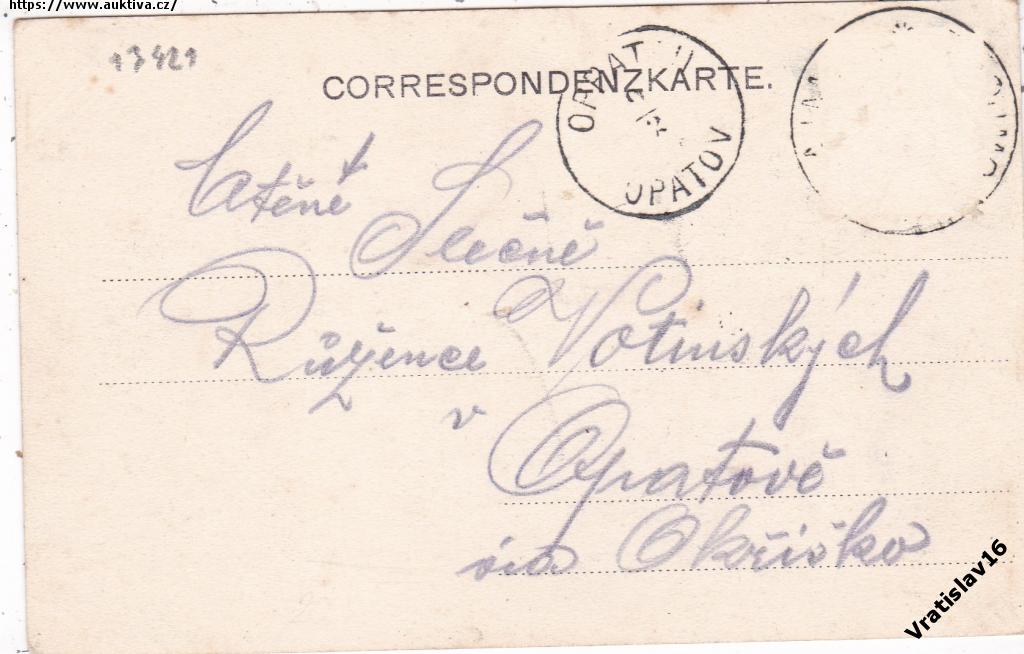 https://www.auktiva.cz/
13421
CORRESPONDENZKARTE.
OPATOV
Ctěné
Slečně
Růžence Votinských
v
Opatově
via Okříško
Vratislav16